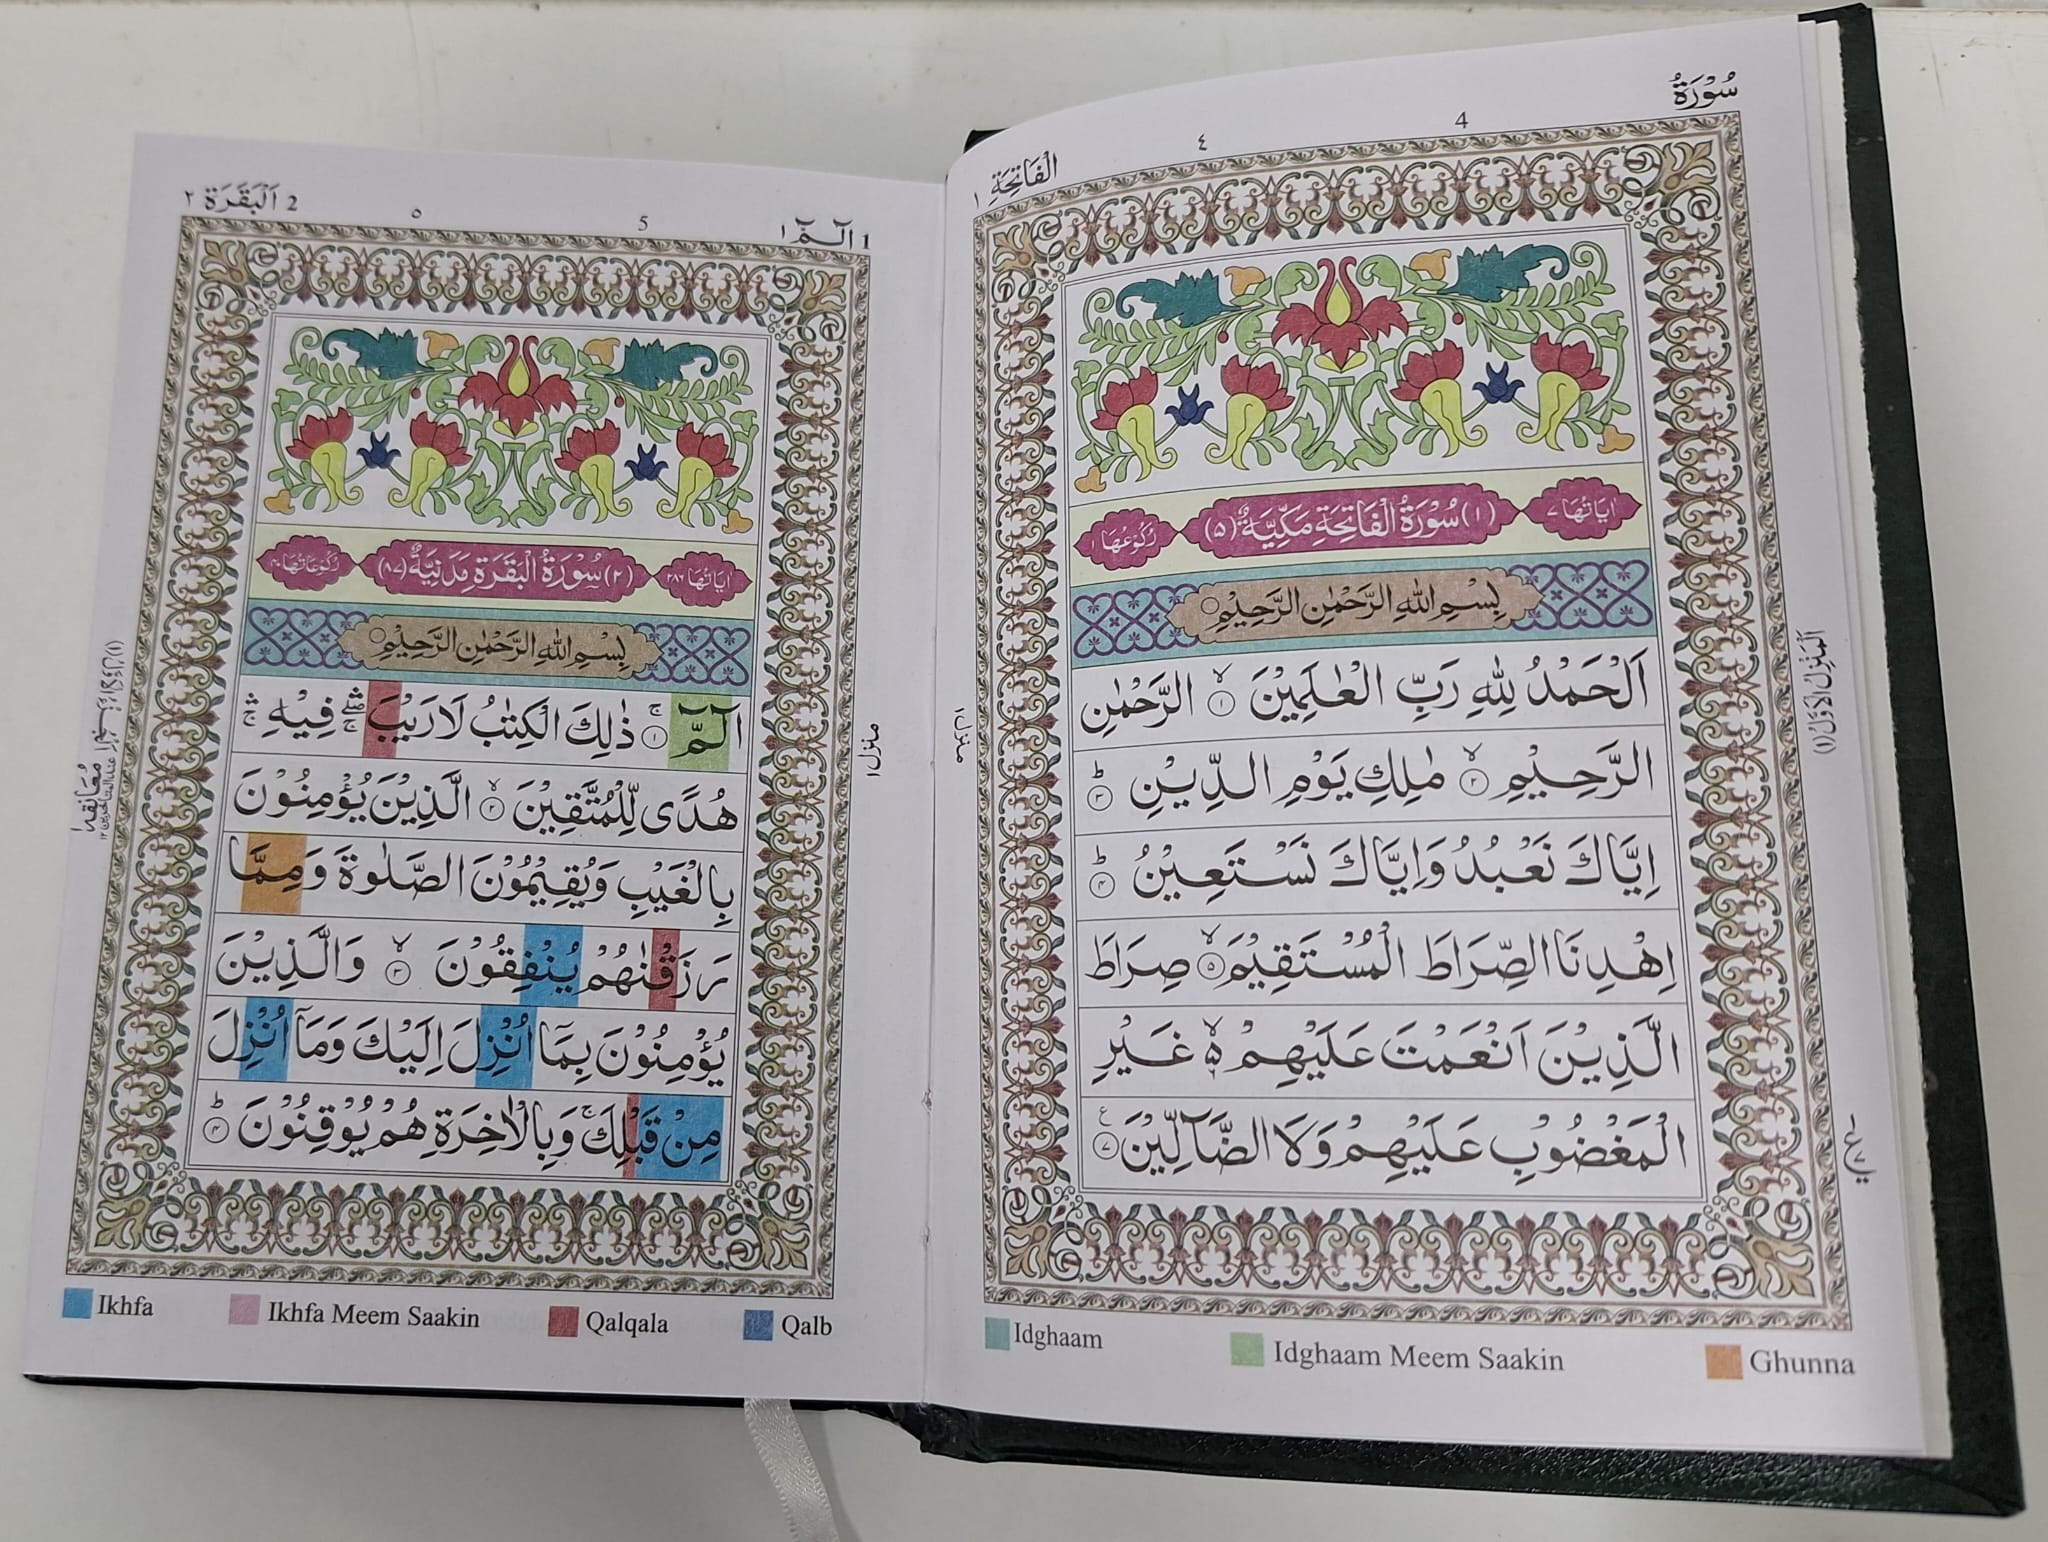 سُوْرَةُ
4
٤
الْفَاتِحَةِ ١
اٰيَاتُهَا ٧
(١) سُوْرَةُ الْفَاتِحَةِ مَكِّيَّةٌ (٥)
رُكُوْعُهَا ١
بِسْمِ اللّٰهِ الرَّحْمٰنِ الرَّحِيْمِ ○
اَلْحَمْدُ لِلّٰهِ رَبِّ الْعٰلَمِيْنَ ۙ ١ الرَّحْمٰنِ
الرَّحِيْمِ ۙ ٢ مٰلِكِ يَوْمِ الدِّيْنِ ؕ ٣
اِيَّاكَ نَعْبُدُ وَاِيَّاكَ نَسْتَعِيْنُ ؕ ٤
اِهْدِنَا الصِّرَاطَ الْمُسْتَقِيْمَ ۙ ٥ صِرَاطَ
الَّذِيْنَ اَنْعَمْتَ عَلَيْهِمْ ۙ۬ غَيْرِ
الْمَغْضُوْبِ عَلَيْهِمْ وَلَا الضَّآلِّيْنَ ٧
اَلْمَنْزِلُ الْاَوَّلُ (١)
منزل ١
Idghaam
Idghaam Meem Saakin
Ghunna
1 الٓمّٓ ١
5
٥
2 اَلْبَقَرَة ٢
اٰيَاتُهَا ٢٨٦
(٢) سُوْرَةُ الْبَقَرَةِ مَدَنِيَّةٌ (٨٧)
رُكُوْعَاتُهَا ٤٠
بِسْمِ اللّٰهِ الرَّحْمٰنِ الرَّحِيْمِ ○
الٓمّٓ ۚ ١ ذٰلِكَ الْكِتٰبُ لَا رَيْبَ ۛۖۚ فِيْهِ ۛۚ
هُدًى لِّلْمُتَّقِيْنَ ۙ ٢ الَّذِيْنَ يُؤْمِنُوْنَ
بِالْغَيْبِ وَيُقِيْمُوْنَ الصَّلٰوةَ وَمِمَّا
رَزَقْنٰهُمْ يُنْفِقُوْنَ ۙ ٣ وَالَّذِيْنَ
يُؤْمِنُوْنَ بِمَآ اُنْزِلَ اِلَيْكَ وَمَآ اُنْزِلَ
مِنْ قَبْلِكَ ۚ وَبِالْاٰخِرَةِ هُمْ يُوْقِنُوْنَ ؕ ٤
منزل ١
Ikhfa
Ikhfa Meem Saakin
Qalqala
Qalb